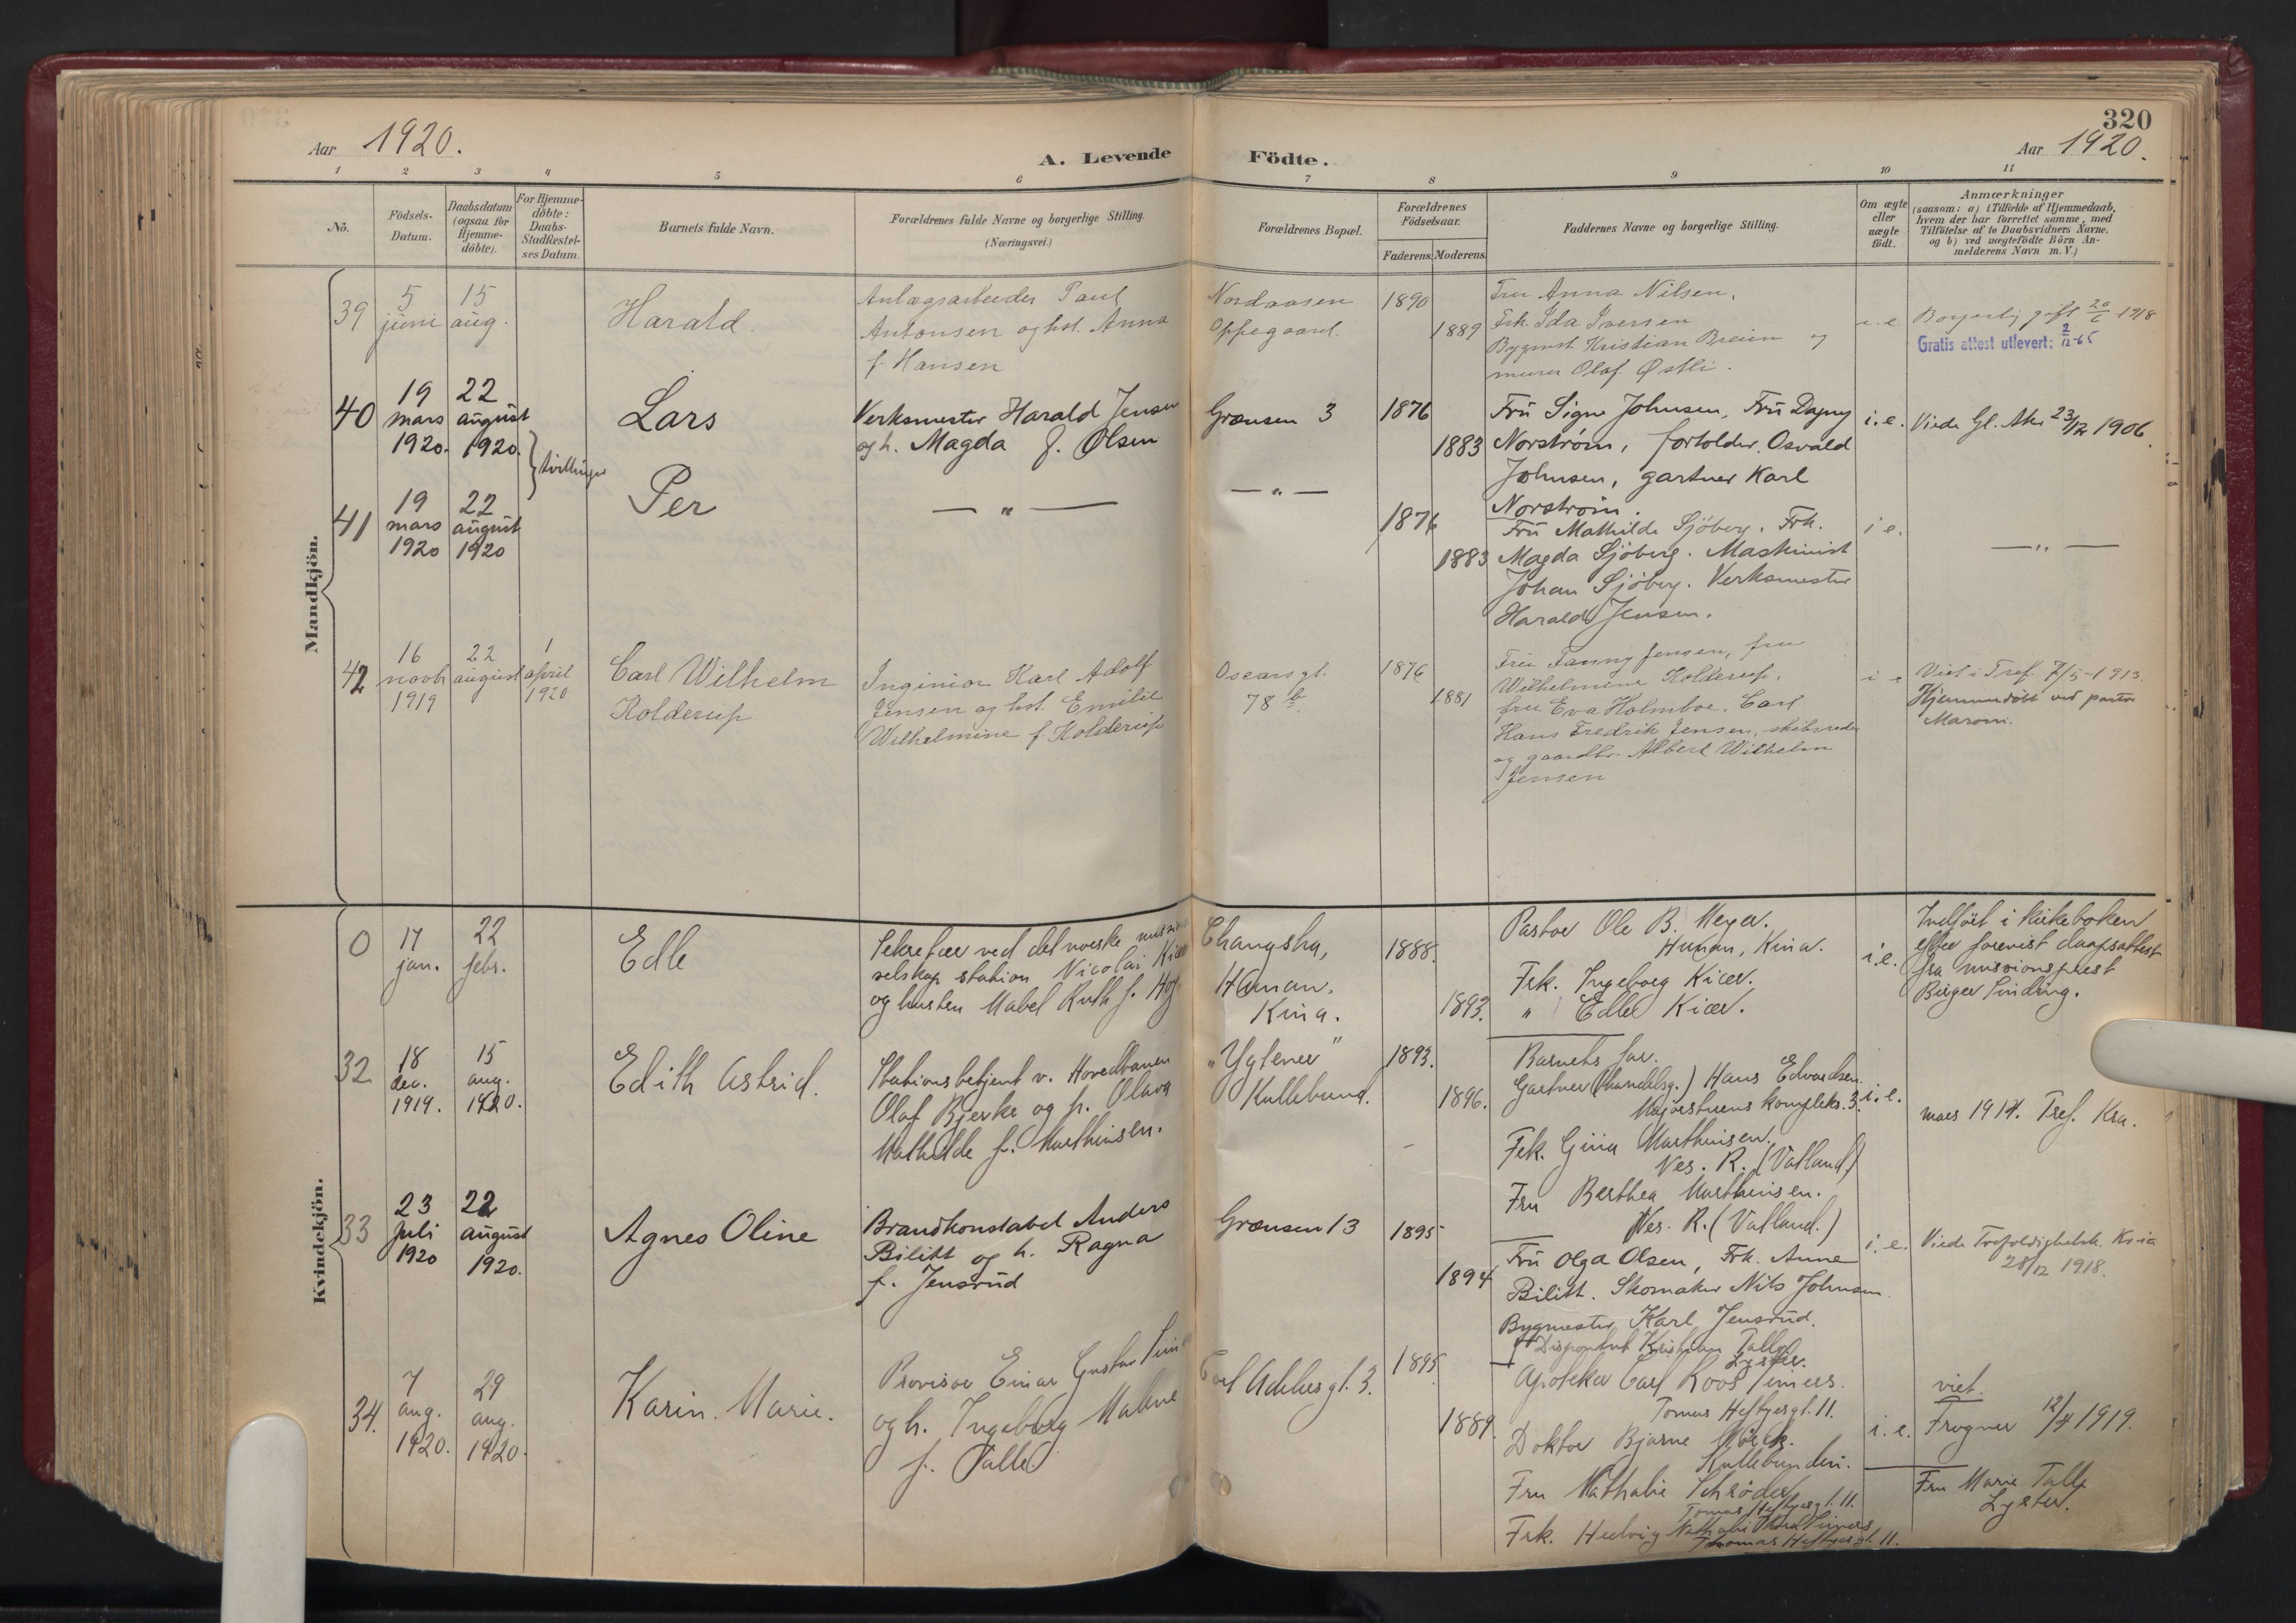 320
Aar 1920.
A. Levende Födte.
Aar 1920.
1 2 3 4 5 6 7 8 9 10 11
No.
Födsels-Datum.
Daabsdatum (ogsaa for Hjemme-döbte).
For Hjemme-döbte: Daabs-Stadfæstel-ses Datum.
Barnets fulde Navn.
Forældrenes fulde Navne og borgerlige Stilling.
(Næringsvei.)
Forældrenes Bopæl.
Forældrenes Födselsaar.
Faderens. Moderens.
Faddernes Navne og borgerlige Stilling.
Om ægte eller uægte födt.
Anmærkninger
(saasom: a) i Tilfælde af Hjemmedaab,
hvem der har forrettet samme, med
Tilföielse af to Daabsvidners Navne.
og b) ved uægtefödte Börn An-
melderens Navn m. V.)
Mandkjön.
39
5 juni
15 aug.
Harald.
Anlægsarbeider Paul
Antonsen og hst. Anna
f. Hansen
Nordaasen
Oppegaard.
1890
1889
Fru Anna Nilsen,
Frk. Ida Iversen
Bygmst. Kristian Breien og
murer Olaf Østli.
i.e.
Borgerlig gift 20/6 1918
Gratis attest utlevert: 2/12-65
40
19 mars 1920.
22 august 1920.
} tvillinger
Lars
Verksmester Harald Jensen
og h. Magda f. Olsen
Grænsen 3
1876
1883
Fru Signe Johnsen, Fru Dagny
Norstrøm, fortolder Osvald
Johnsen, gartner Karl
Norstrøm.
i.e.
Viede Gl. Aker 23/12 1906.
41
19 mars 1920
22 august 1920
Per
— " —
— " —
1876
1883
Fru Mathilde Sjöberg. Frk.
Magda Sjöberg. Maskinist
Johan Sjöberg. Verksmester
Harald Jensen.
i e.
— " —
42
16 novb 1919
22 august
1 april 1920
Carl Wilhelm
Kolderup
Ingeniør Karl Adolf
Jensen og hst. Emilie
Wilhelmine f. Kolderup
Oscarsgt.
78 b.
1876
1881
Fru Fanny Jensen, fru
Wilhelmine Kolderup,
fru Eva Holmboe. Carl
Hans Fredrik Jensen, skibsreder
og gaardbr. Albert Wilhelm
Jensen
i e
Viet i Tref. 7/5-1913.
Hjemmedöbt ved pastor
Maroni.
Kvindekjön.
0
17 jan.
22 febr.
Edle
Sekretær ved det norske
selskap station Nicolai Kiær
og hustru Mabel Ruth f.
Changsha,
Hunan,
Kina.
1888.
1893.
Pastor Ole B. Meyer.
Hunan, Kina.
Frk. Ingeborg Kiær.
" Edle Kiær.
i.e.
Indført i kirkeboken
efter forevist daapsattest
fra missionsprest
Birger Sinding.
32
18 dec. 1919.
15 aug. 1920.
Edith Astrid.
Stationsbetjent v. Hovedbanen
Olaf Bjerke og h. Olava
Mathilde f. Marthinsen.
Kullebund.
1893.
1896.
Barnets far.
Gartner (handelsg.) Hans Edvardsen.
Majorstuens kompleks. 3.
Frk. Gina Marthinsen.
Nes. R. (Vatland.)
Fru Berthea Marthinsen.
Nes. R. (Vatland.)
i.e.
mars 1914. Tref. Kra.
33
23 Juli 1920
22 august 1920.
Agnes Oline
Brandkonstabel Anders
Bilitt og h. Ragna
f. Jensrud
Grænsen 13
1895
1894
Fru Olga Olsen, Frk. Anne
Bilitt. Skomaker Nils Johnsen
Bygmester Karl Jensrud.
i. e.
Viede Trefoldighetsk. Kr-ia
28/12 1918.
34.
7 aug. 1920.
29 aug. 1920.
Karin. Marie.
Provisor Einar Gustav
og h. Ingeborg Malene
f. Talle
gt. 3.
1895
1889.
Disponent Kristian Talle
Lyster.
Apoteker Carl Roos
Tomas Heftyesgt. 11.
Doktor Bjarne
Kullebunden.
Fru Nathalie Schrøder
Tomas Heftyesgt. 11.
Frk. Hedvig Nathalie
Thomas Heftyesgt. 11.
i. e.
viet.
Frogner 12/4 1919.
Fru Marie Talle
Lyster.